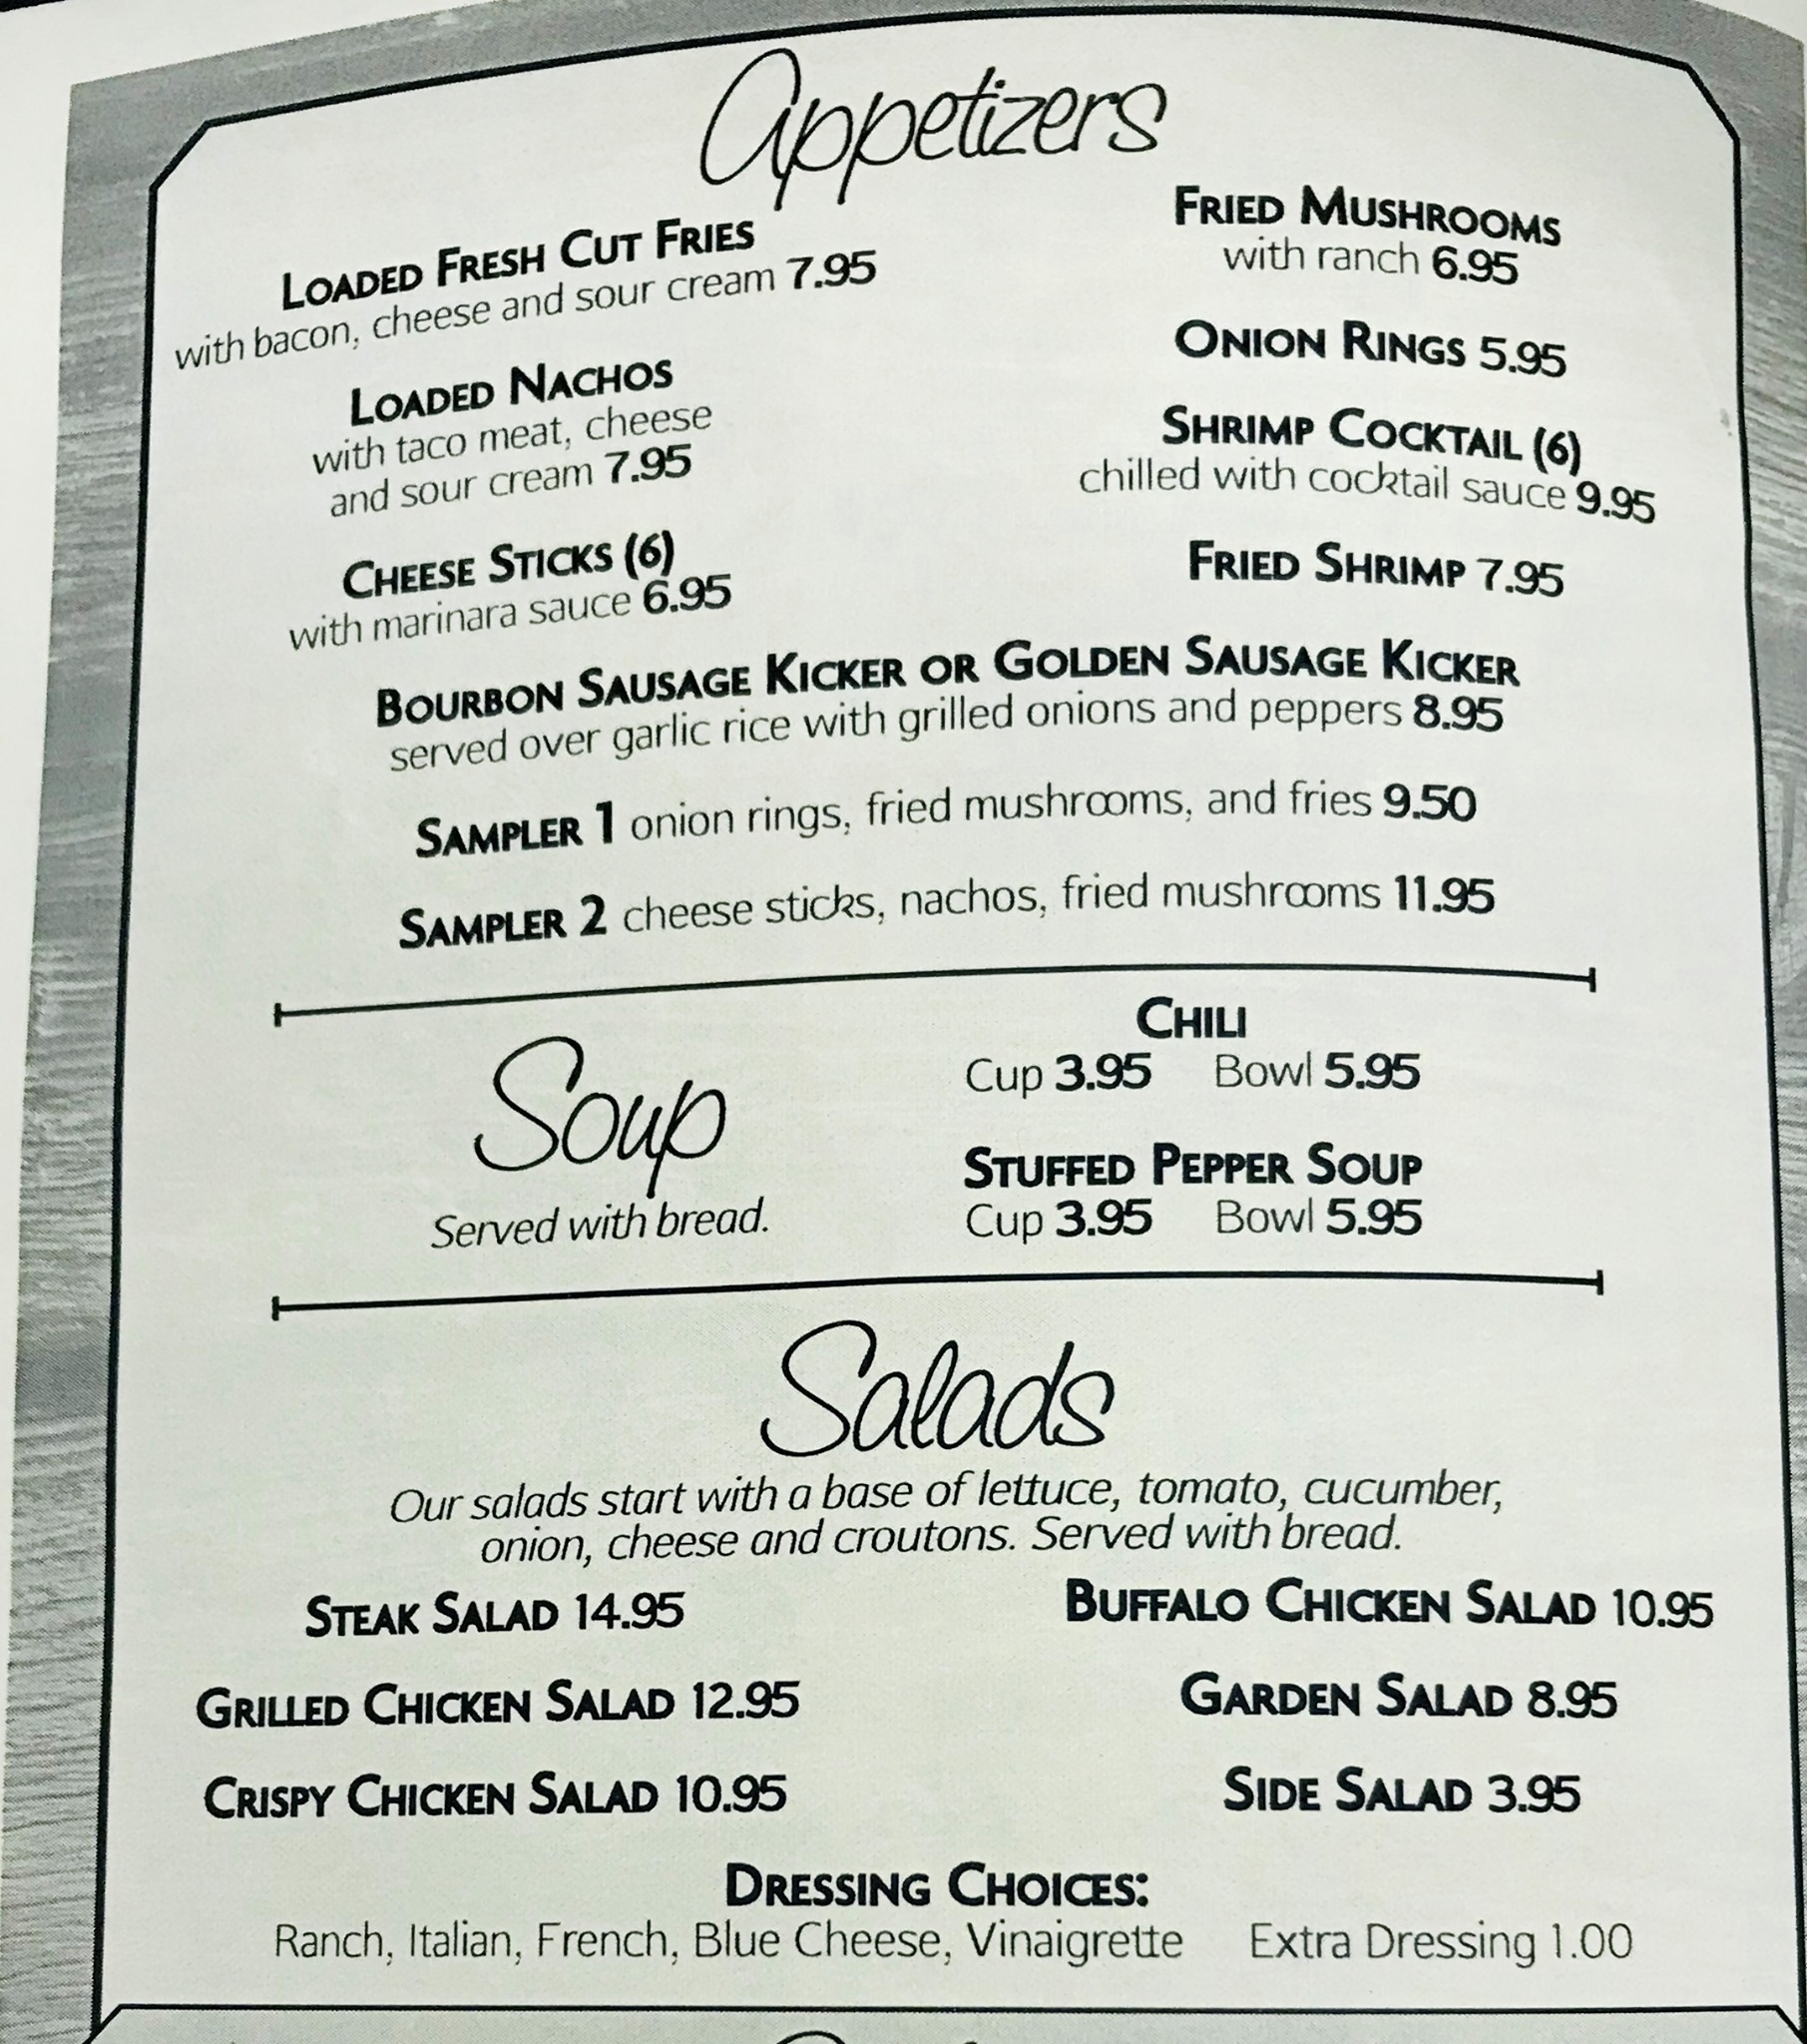 Appetizers
LOADED FRESH CUT FRIES
with bacon, cheese and sour cream 7.95
LOADED NACHOS
with taco meat, cheese
and sour cream 7.95
CHEESE STICKS (6)
with marinara sauce 6.95
FRIED MUSHROOMS
with ranch 6.95
ONION RINGS 5.95
SHRIMP COCKTAIL (6)
chilled with cocktail sauce 9.95
FRIED SHRIMP 7.95
BOURBON SAUSAGE KICKER OR GOLDEN SAUSAGE KICKER
served over garlic rice with grilled onions and peppers 8.95
SAMPLER 1 onion rings, fried mushrooms, and fries 9.50
SAMPLER 2 cheese sticks, nachos, fried mushrooms 11.95
Soup
Served with bread.
CHILI
Cup 3.95 Bowl 5.95
STUFFED PEPPER SOUP
Cup 3.95 Bowl 5.95
Salads
Our salads start with a base of lettuce, tomato, cucumber,
onion, cheese and croutons. Served with bread.
STEAK SALAD 14.95
GRILLED CHICKEN SALAD 12.95
CRISPY CHICKEN SALAD 10.95
BUFFALO CHICKEN SALAD 10.95
GARDEN SALAD 8.95
SIDE SALAD 3.95
DRESSING CHOICES:
Ranch, Italian, French, Blue Cheese, Vinaigrette Extra Dressing 1.00